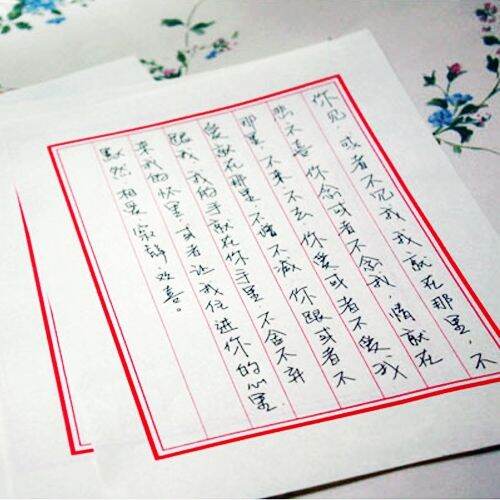 你见，或者不见我 我就在那里，不
悲不喜 你念或者不念我，情就在
那里 不来不去 你爱或者不爱我
爱就在那里 不增不减 你跟或者不
跟我 我的手就在你手里 不舍不弃
来我的怀里 或者 让我住进你的心里
默然 相爱 寂静 欢喜。